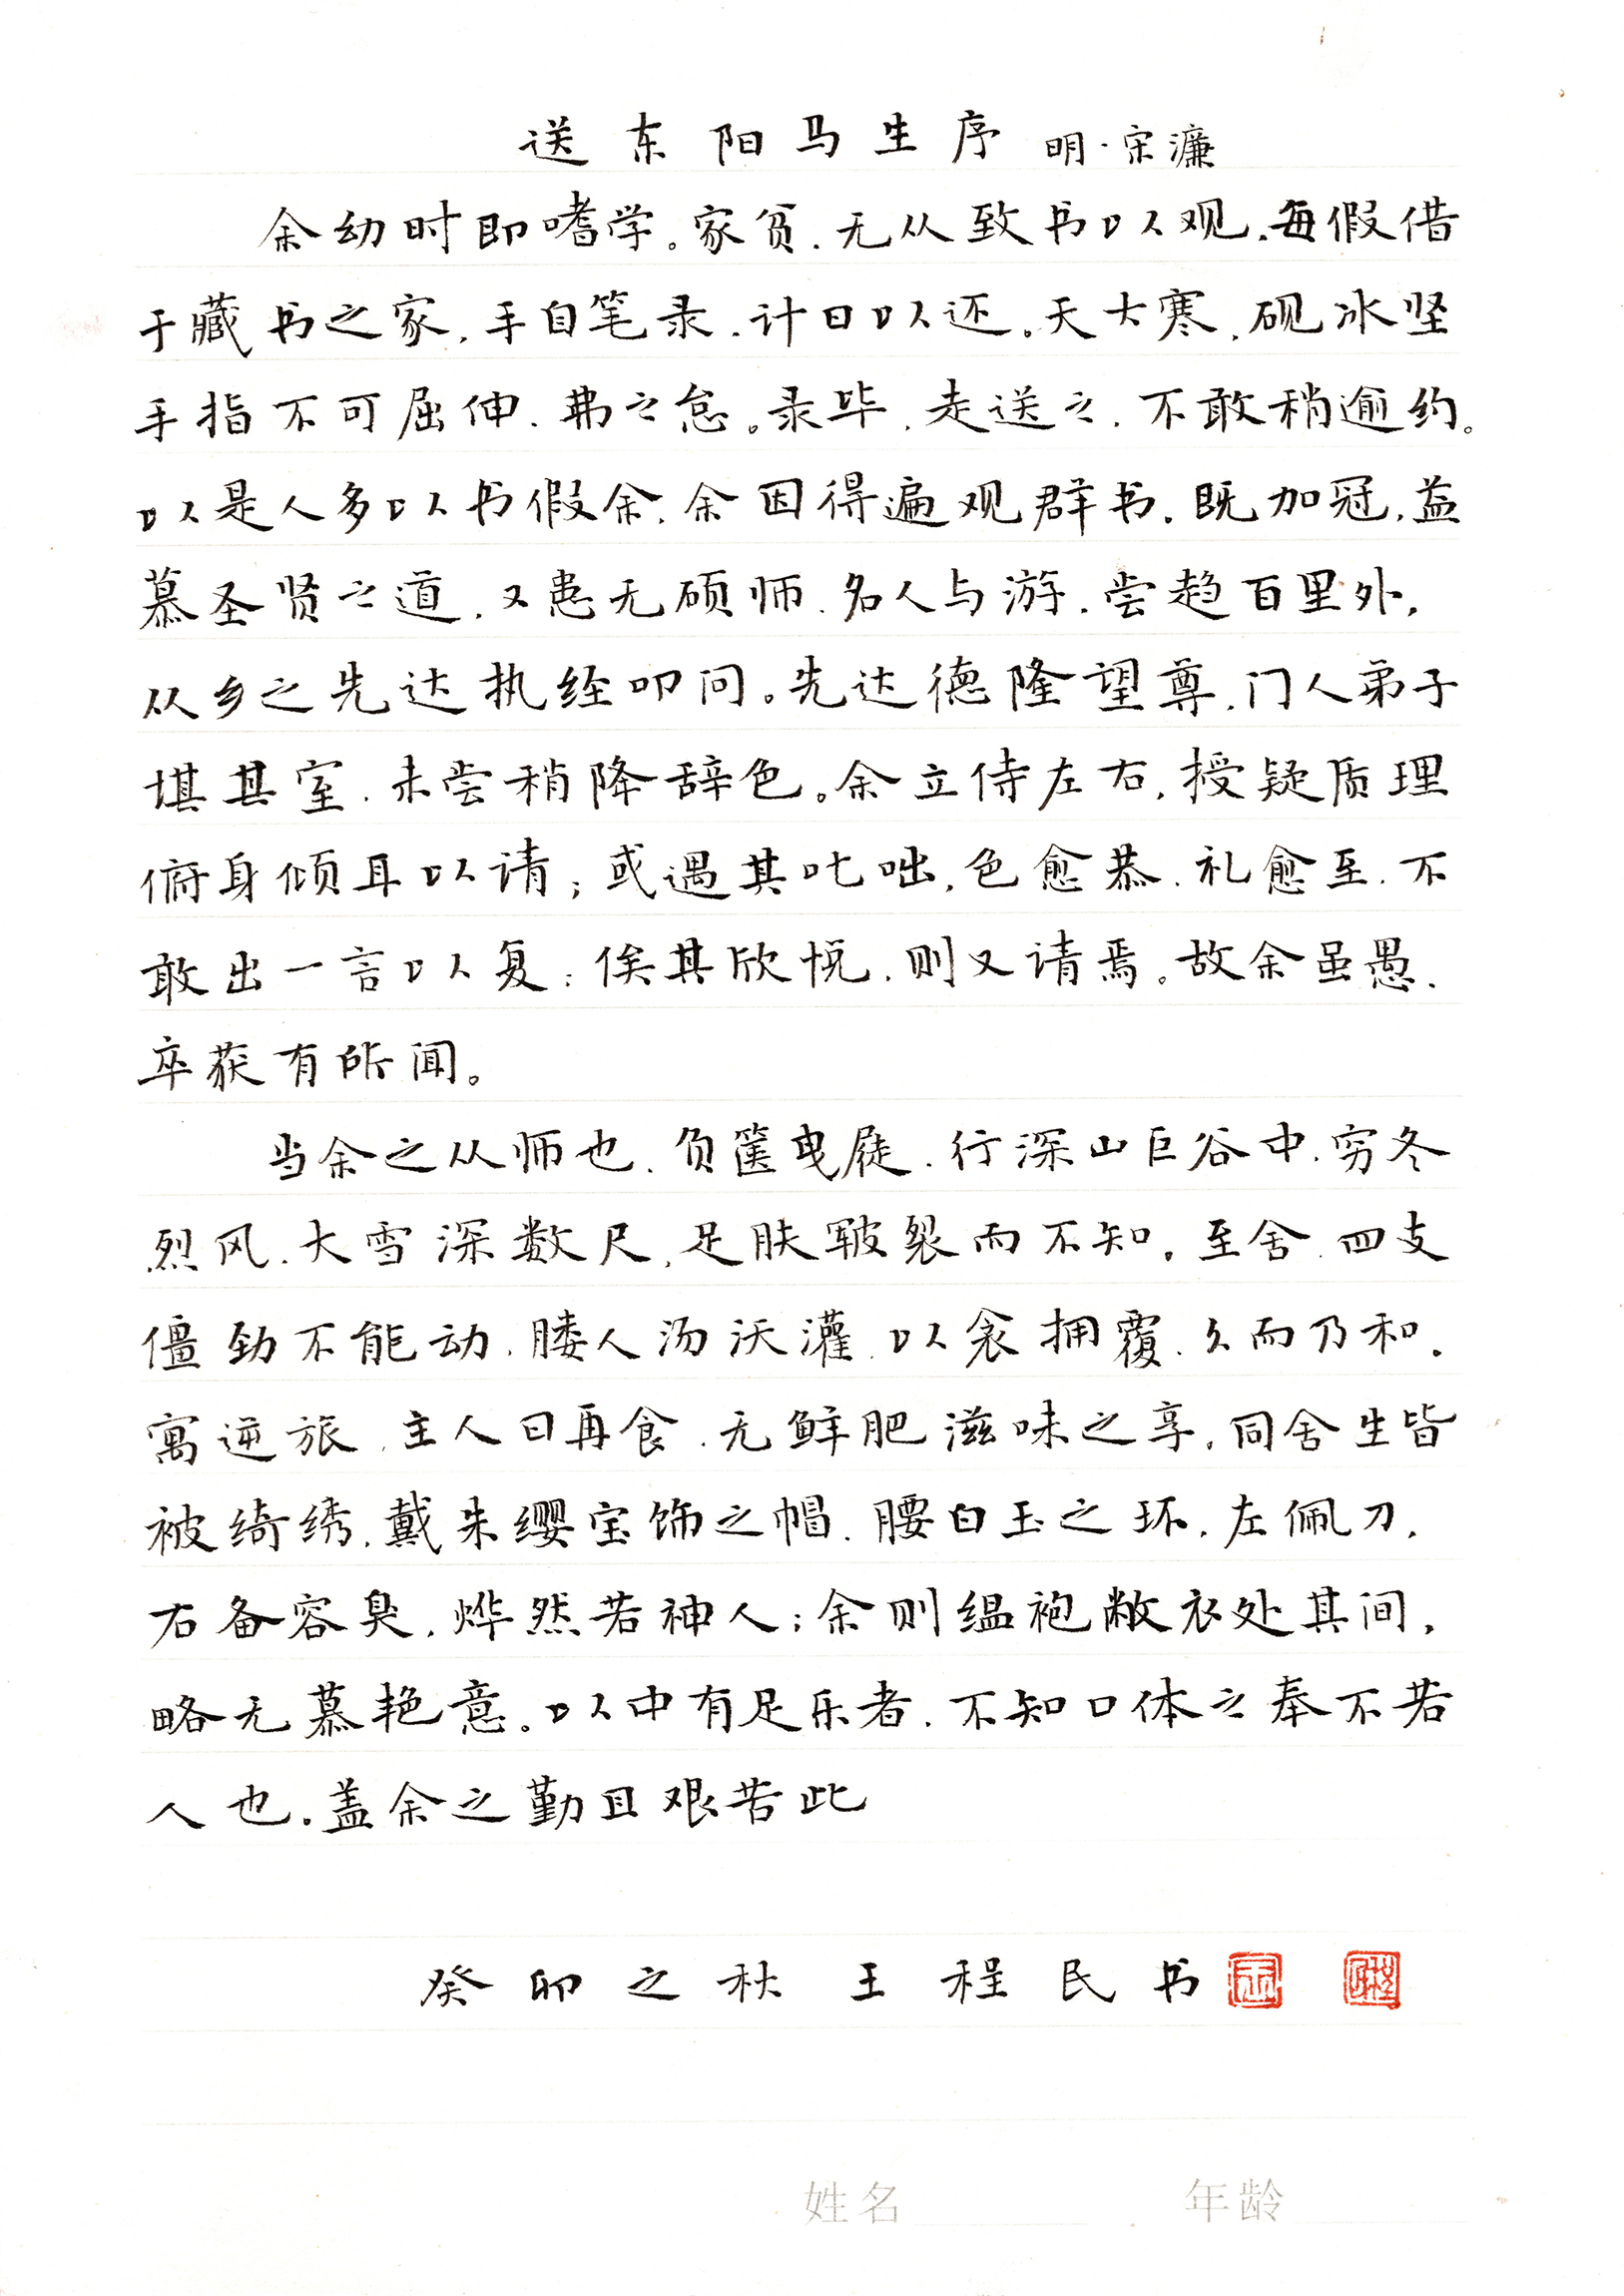 送东阳马生序 明·宋濂
余幼时即嗜学。家贫,无从致书以观,每假借
于藏书之家,手自笔录,计日以还。天大寒,砚冰坚
手指不可屈伸,弗之怠。录毕,走送之,不敢稍逾约。
以是人多以书假余,余因得遍观群书。既加冠,益
慕圣贤之道,又患无硕师、名人与游,尝趋百里外,
从乡之先达执经叩问。先达德隆望尊,门人弟子
填其室,未尝稍降辞色。余立侍左右,授疑质理
俯身倾耳以请;或遇其叱咄,色愈恭,礼愈至,不
敢出一言以复;俟其欣悦,则又请焉。故余虽愚,
卒获有所闻。
当余之从师也,负箧曳屣,行深山巨谷中,穷冬
烈风,大雪深数尺,足肤皲裂而不知。至舍,四支
僵劲不能动,媵人汤沃灌,以衾拥覆,久而乃和。
寓逆旅,主人日再食,无鲜肥滋味之享。同舍生皆
被绮绣,戴朱缨宝饰之帽,腰白玉之环,左佩刀,
右备容臭,烨然若神人;余则缊袍敝衣处其间,
略无慕艳意。以中有足乐者,不知口体之奉不若
人也。盖余之勤且艰若此
癸卯之秋 王程民书
姓名 年龄